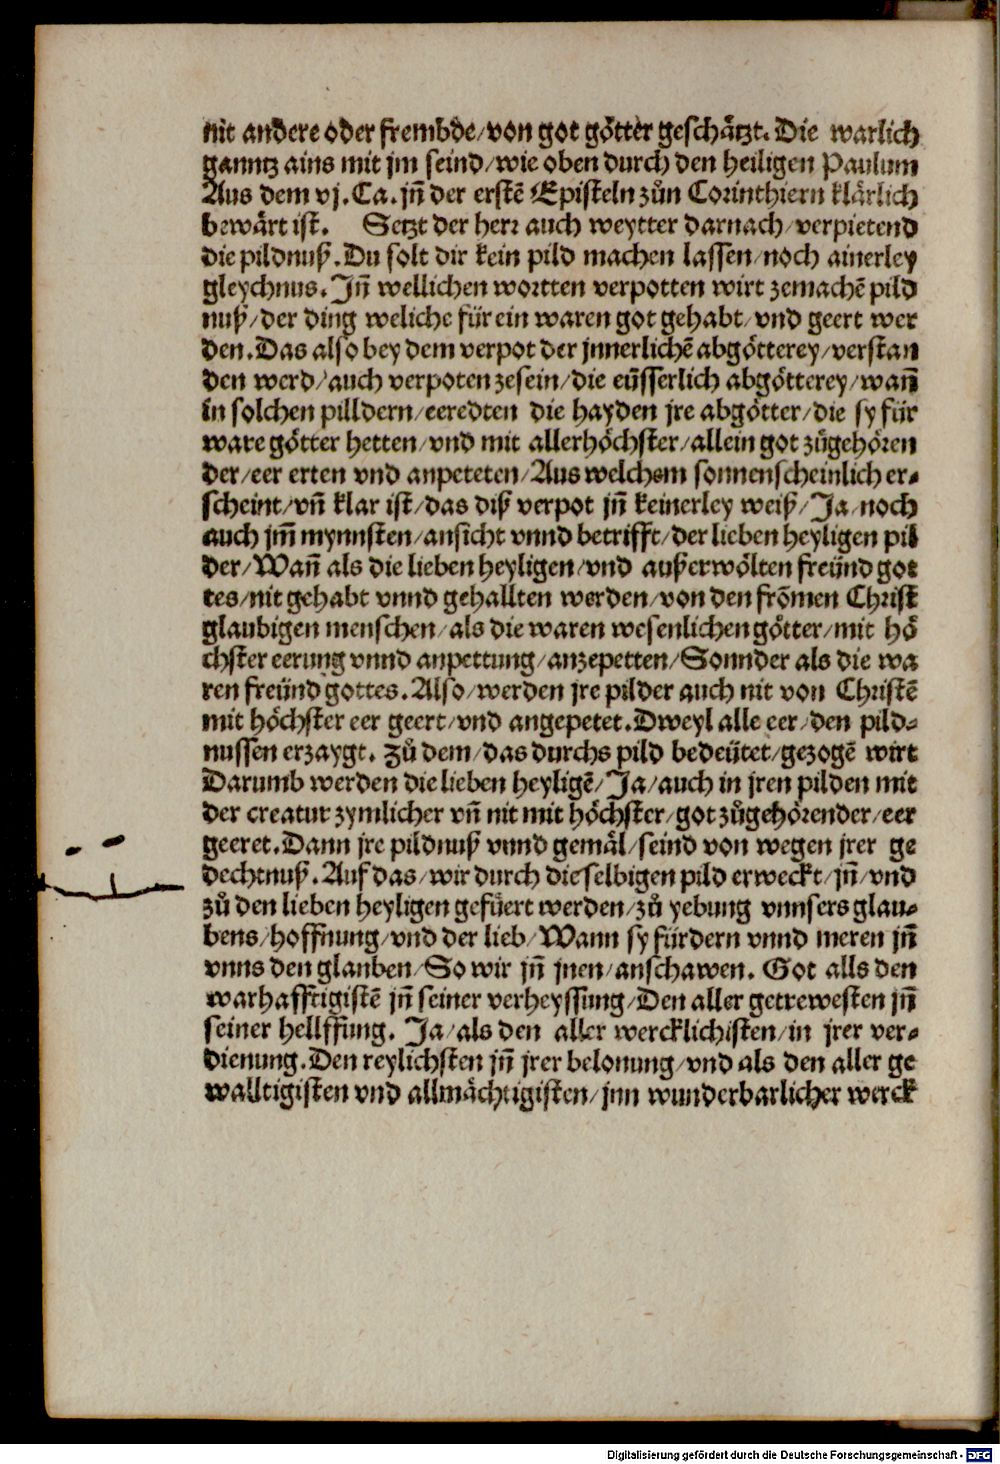 nit andere oder frembde/von got götter geschätzt. Die warlich
ganntz ains mit jm seind/wie oben durch den heiligen Paulum
Aus dem vj. Ca. jñ der erstē Episteln zůn Corinthiern klärlich
bewärt ist. Setzt der herr auch weytter darnach/verpietend
die pildnuß. Du solt dir kein pild machen lassen/noch ainerley
gleychnus. Jñ wellichen wortten verpotten wirt zemachē pild
nuß/der ding weliche für ein waren got gehabt/vnd geert wer
den. Das also bey dem verpot der jnnerlichē abgötterey/verstan
den werd/auch verpoten zesein/die eüsserlich abgötterey/wañ
in solchen pilldern/eeredten die hayden jre abgötter/die sy für
ware götter hetten/vnd mit allerhöchster/allein got zůgehören
der/eer erten vnd anpeteten/Aus welchem sonnenscheinlich er-
scheint/vñ klar ist/das diß verpot jñ keinerley weiß/Ja/noch
auch jm̄ mynnsten/ansicht vnnd betrifft/der lieben heyligen pil
der/Wañ als die lieben heyligen/vnd außerwölten freünd got
tes/nit gehabt vnnd gehallten werden/von den frōmen Christ
glaubigen menschen/als die waren wesenlichen götter/mit hö
chster eerung vnnd anpettung/anzepetten/Sonnder als die wa
ren freünd gottes. Also/werden jre pilder auch nit von Christē
mit höchster eer geert/vnd angepetet. Dweyl alle eer/den pild-
nussen erzaygt. Zů dem/das durchs pild bedeütet/gezogē wirt
Darumb werden die lieben heyligē/Ja/auch in jren pilden mit
der creatur zymlicher vñ nit mit höchster/got zůgehörender/eer
geeret. Dann jre pildnuß vnnd gemäl/seind von wegen jrer ge
dechtnuß. Auf das/wir durch dieselbigen pild erweckt/jñ/vnd
zů den lieben heyligen gefüert werden/zů yebung vnnsers glau-
bens/hoffnung/vnd der lieb/Wann sy fürdern vnnd meren jñ
vnns den glauben/So wir jñ jnen/anschawen. Got alls den
warhafftigistē jñ seiner verheyssung/Den aller getrewesten jñ
seiner hellffung. Ja/als den aller wercklichisten/in jrer ver-
dienung. Den reylichsten jñ jrer belonung/vnd als den aller ge
walltigisten vnd allmächtigisten/jnn wunderbarlicher werck
Digitalisierung gefördert durch die Deutsche Forschungsgemeinschaft - DFG